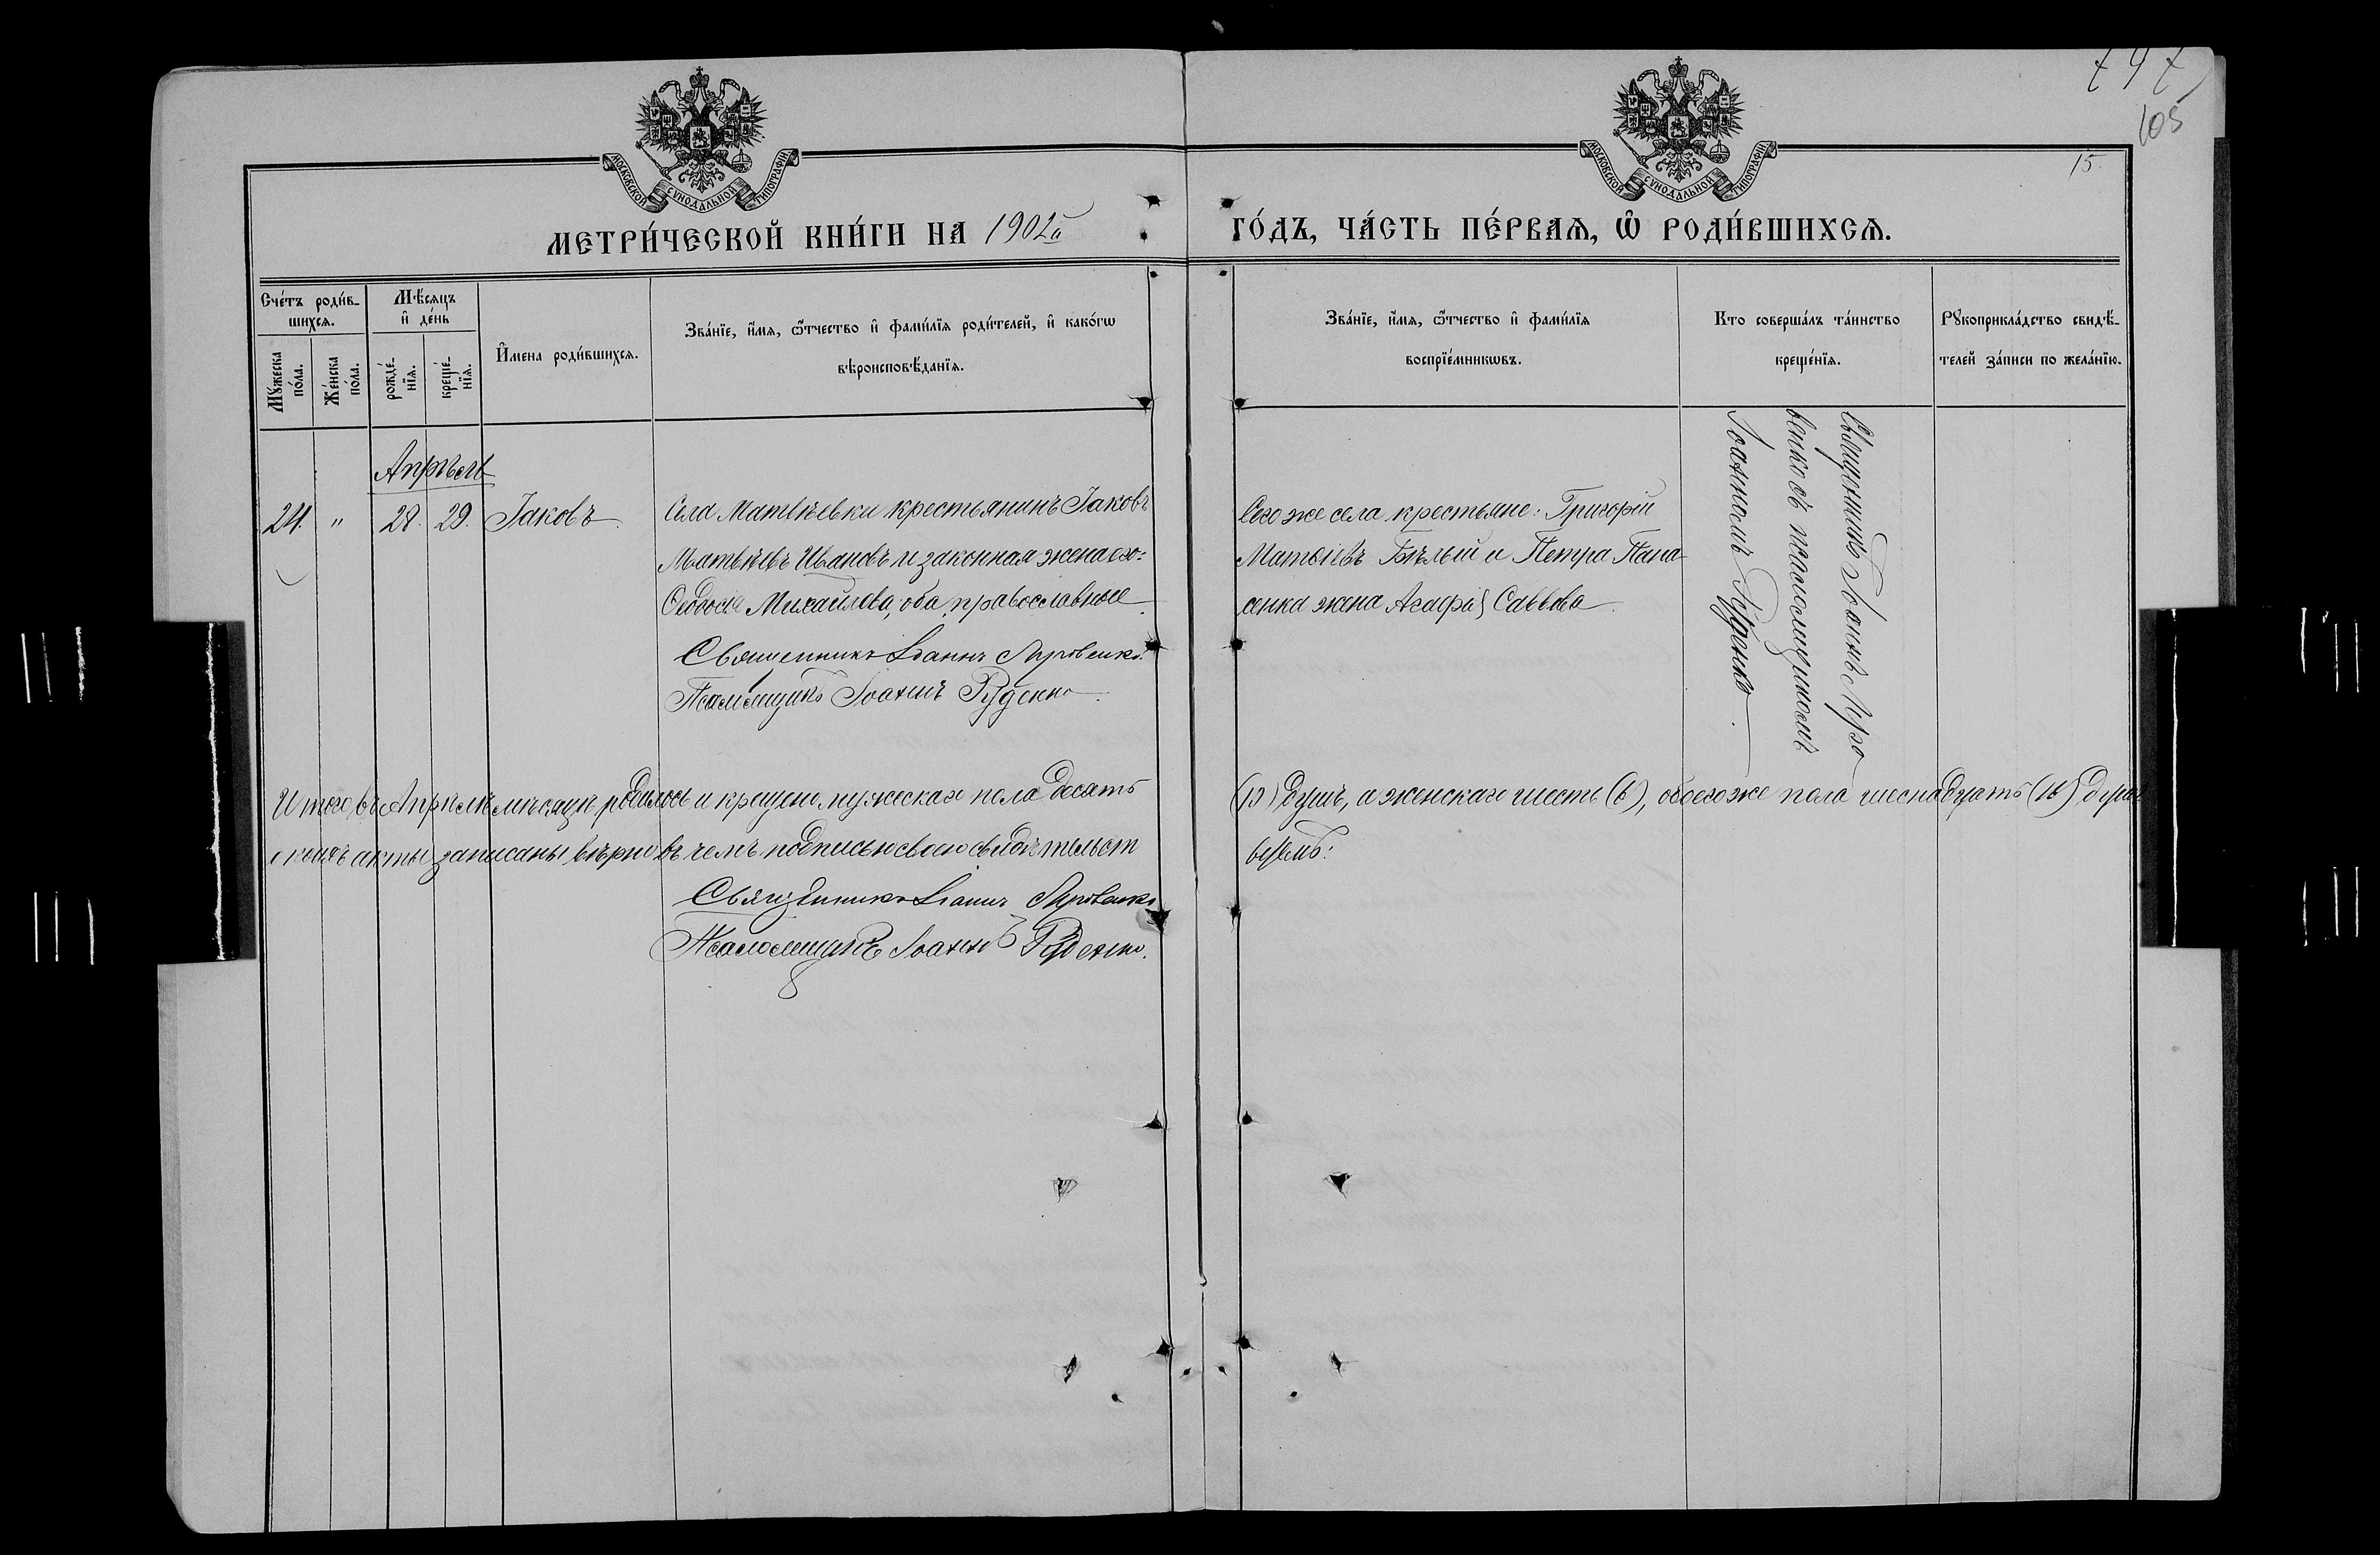 747
105
15.
МОСКОВСКОЙ СѴНОДАЛЬНОЙ ТИПОГРАФІИ
МОСКОВСКОЙ СѴНОДАЛЬНОЙ ТИПОГРАФІИ
МЕТРИ́ЧЕСКОЙ КНИ́ГИ НА 1902й ГО́ДЪ, ЧА́СТЬ ПЕ́РВАѦ, Ѡ҆ РОДИ́ВШИХСѦ.
Сче́тъ роди́в-
шихсѧ.
Мꙋ́жеска
по́ла.
Же́нска
по́ла.
Мѣ́сѧцъ
и҆ де́нь
рожде́-
нїѧ.
креще́-
нїѧ.
И҆мена роди́вшихсѧ.
Зва́нїе, и҆́мѧ, ѻ҆́тчество и҆ фами́лїѧ роди́телей, и҆ како́гѡ
вѣроисповѣ́данїѧ.
Зва́нїе, и҆́мѧ, ѻ҆́тчество и҆ фами́лїѧ
воспрїе́мникѡвъ.
Кто соверша́лъ та́инство
креще́нїѧ.
Рꙋкоприкла́дство свидѣ́-
телей за́писи по жела́нїю.
Апрѣль
24. " 28. 29. Іаковъ.
Села Матвѣевки крестьянинъ Іаковъ
Матвѣевъ Ивановъ и законная жена его:
Ѳеодосія Михайлова, оба православные.
Священникъ Іоаннъ Яровенко.
Псаломщикъ Іоаннъ Руденко.
Сего же села крестьяне: Григорій
Матвѣевъ Бѣлый и Петра Пана-
сенка жена Агафія Саввова.
Священникъ Іоаннъ Яро
венко съ псаломщикомъ
Іоанномъ Руденко.
Итого въ Апрѣлѣ мѣсяцѣ родилось и крещено мужескаго пола десять (10) душъ, а женскаго шесть (6), обоего же пола шеснадцать (16) душъ
о коихъ акты записаны вѣрно въ чемъ подписью своею свидѣтельст
вуемъ:
Священникъ Іоаннъ Яровенко
Псаломщикъ Іоаннъ Руденко.